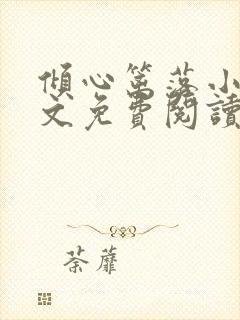 傾心篱落小
文免費閱讀
荼蘼